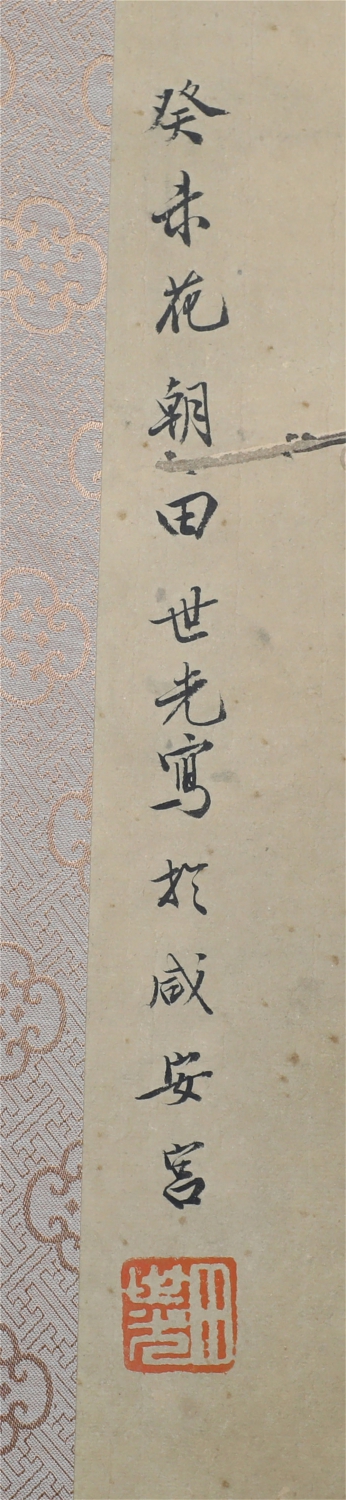 癸未花朝田世光寫於咸安宮